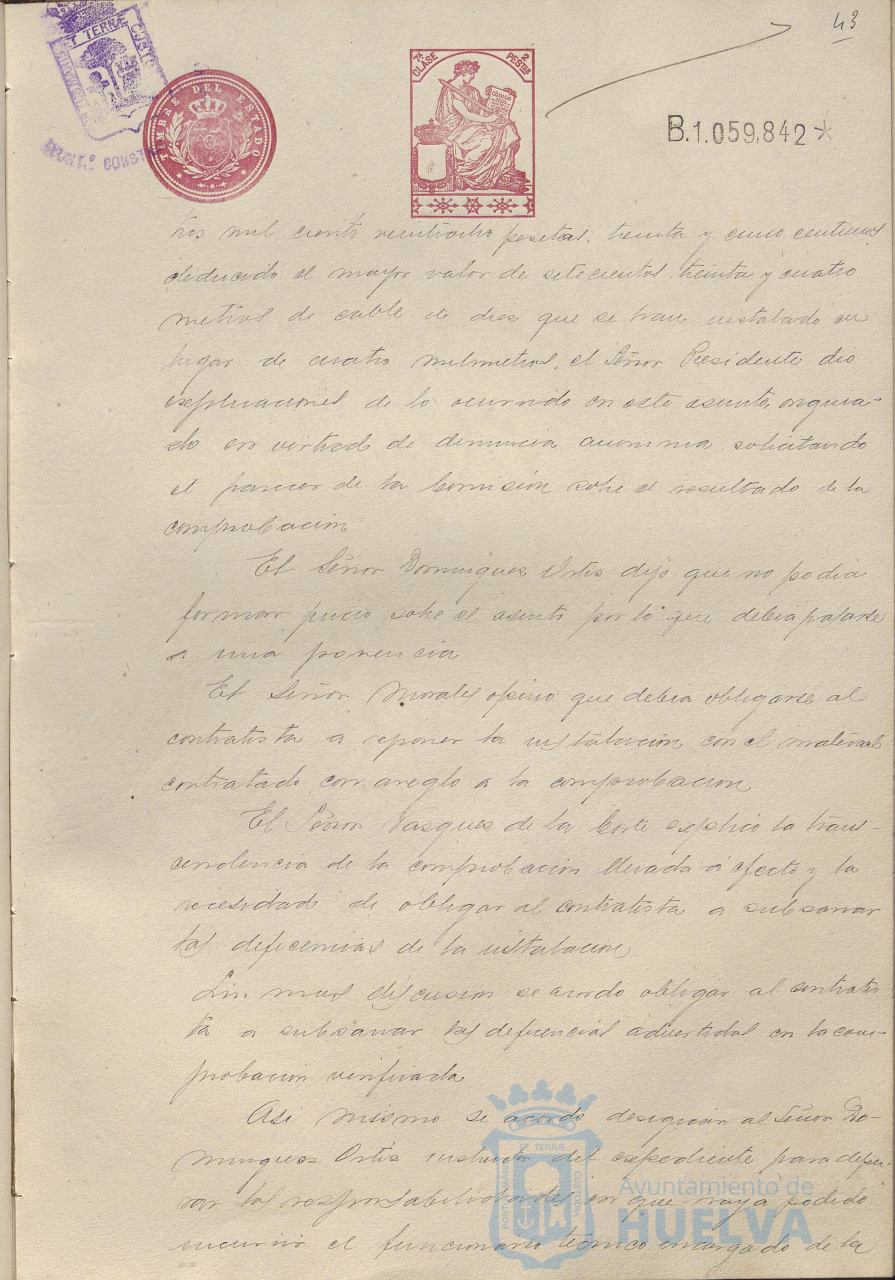 43
ET TERRÆ CUSTO
AYUNT.º CONST
TIMBRE DEL ESTADO
7ª CLASE 2 PESTAS
CODIGO
B.1.059,842*
tros mil ciento veintiocho pesetas, treinta y cinco centimos
deducido el mayor valor de setecientos treinta y cuatro
metros de cable de dies que se han instalado en
lugar de cuatro milimetros, el Señor Presidente dio
explicaciones de lo ocurrido en este asunto, origina-
do en virtud de denuncia anonima solicitando
el parecer de la Comisión sobre el resultado de la
comprobación
El Señor Dominguez Ortis dijo que no podia
formar juicio sobre el asunto por lo que debia pasarse
a una ponencia
El Señor Morales opino que debia obligarse al
contratista a reponer la instalacion con el material
contratado con areglo a la comprobacion
El Señor Vasques de la Corte explico la trans-
cendencia de la comprobacion llevada a efecto y la
necesidad de obligar al contratista a subsanar
las deficencias de la instalacion
Sin mas discusion se acordo obligar al contratis
ta a subsanar las deficencias advertidas en la com-
probacion verificada
Asi mismo se acordo designar al Señor Do-
mingues Ortis instructor del expediente para depu-
rar las responsabilidades en que haya podido
incurrir el funcionario técnico encargado de la
PORTUS MARIS ET TERRÆ CUSTODIA
Ayuntamiento de
HUELVA